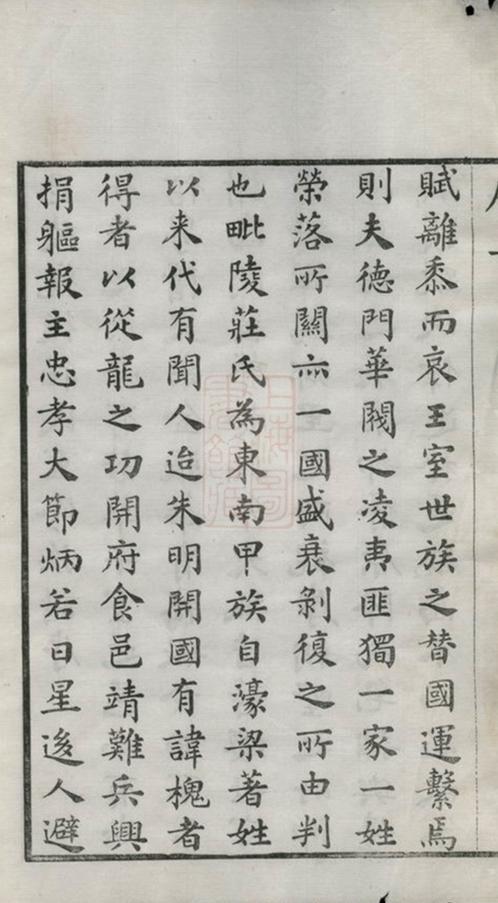 賦離黍而哀王室世族之替國運繫焉
則夫德門華閥之凌夷匪獨一家一姓
榮落所關亦一國盛衰剝復之所由判
也毗陵莊氏為東南甲族自濠梁著姓
以来代有聞人迨朱明開國有諱槐者
得者以從龍之功開府食邑靖難兵興
捐軀報主忠孝大節炳若日星後人避